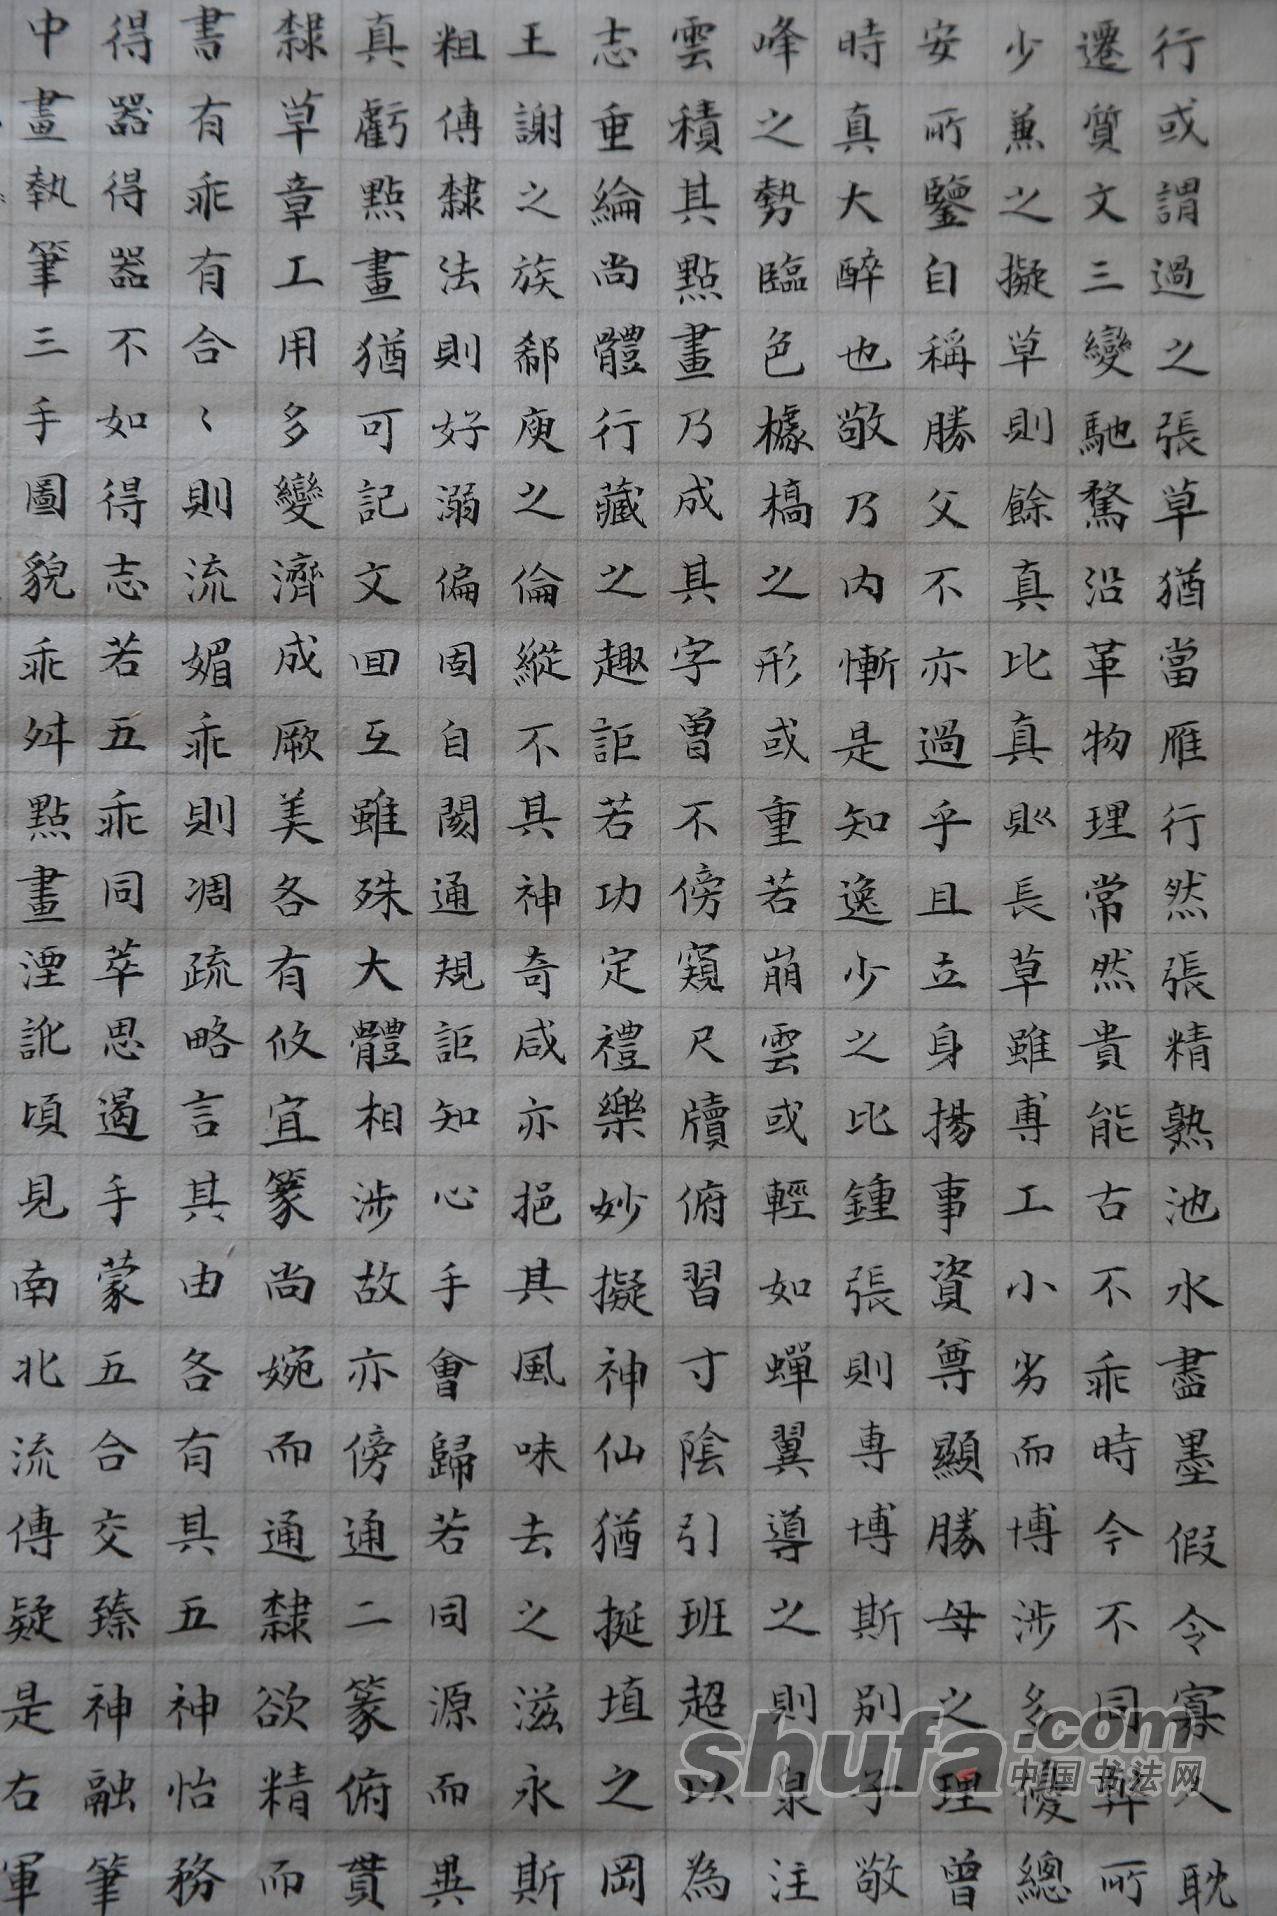 行或謂過之張草猶當雁行然張精熟池水盡墨假令寡
耽
遷質文三變馳騖沿革物理常然貴能古不乖時今不同弊所
少兼之擬草則餘真比真則長草雖專工小劣而博涉多優總
安所鑒自稱勝父不亦過乎且立身揚事資尊顯勝母之理曾
時真大醉也敬乃內慚是知逸少之比鍾張則專博斯別子敬
峰之勢臨色㯫槁之形或重若崩雲或輕如蟬翼導之則泉注
雲積其點畫乃成其字曾不傍窺尺牘俯習寸陰引班超以為
志垂綸尚體行藏之趣詎若功定禮樂妙擬神仙猶挻埴之岡
王謝之族郗庾之倫縱不其神奇咸亦挹其風味去之滋永斯
粗傳隸法則好溺偏固自閡通規詎知心手會歸若同源而異
真虧點畫猶可記文回互雖殊大體相涉故亦傍通二篆俯貫
隸草章工用多變濟成厥美各有攸宜篆尚婉而通隸欲精而
書有乖有合合則流媚乖則凋疏略言其由各有其五神怡務
得器得器不如得志若五乖同萃思遏手蒙五合交臻神融筆
中畫執筆三手圖貌乖舛點畫湮訛頃見南北流傳疑是右軍
shufa.com
中国书法网